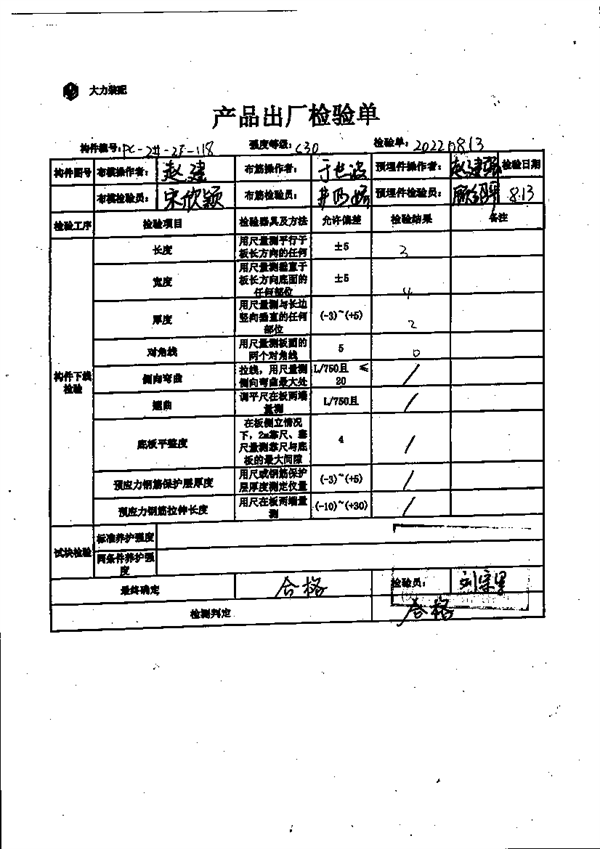 大力装配
产品出厂检验单
构件编号：PC-2#-2F-118 强度等级：C30 检验单：20220813
构件图号 布模操作者： 赵建 布筋操作者： 预埋件操作者： 检验日期
布模检验员： 宋欣颖 布筋检验员： 预埋件检验员： 8.13
检验工序 检验项目 检验器具及方法 允许偏差 检验结果 备注
构件下线检验
长度 用尺量测平行于板长方向的任何 ±5 3
宽度 用尺量测垂直于板长方向底面的任何部位 ±5 4
厚度 用尺量测与长边竖向垂直的任何部位 (-3)~(+5) 2
对角线 用尺量测板面的两个对角线 5 0
侧向弯曲 拉线，用尺量测侧向弯曲最大处 L/750且 ≤20 /
翘曲 调平尺在板两端量测 L/750且 /
底板平整度 在板侧立情况下，2m靠尺、塞尺量测靠尺与底板的最大间隙 4 /
预应力钢筋保护层厚度 用尺或钢筋保护层厚度测定仪量 (-3)~(+5) /
预应力钢筋拉伸长度 用尺在板两端量测 (-10)~(+30) /
试块检验 标准养护强度
同条件养护强度
最终确定 合格 检验员：
检测判定 合格